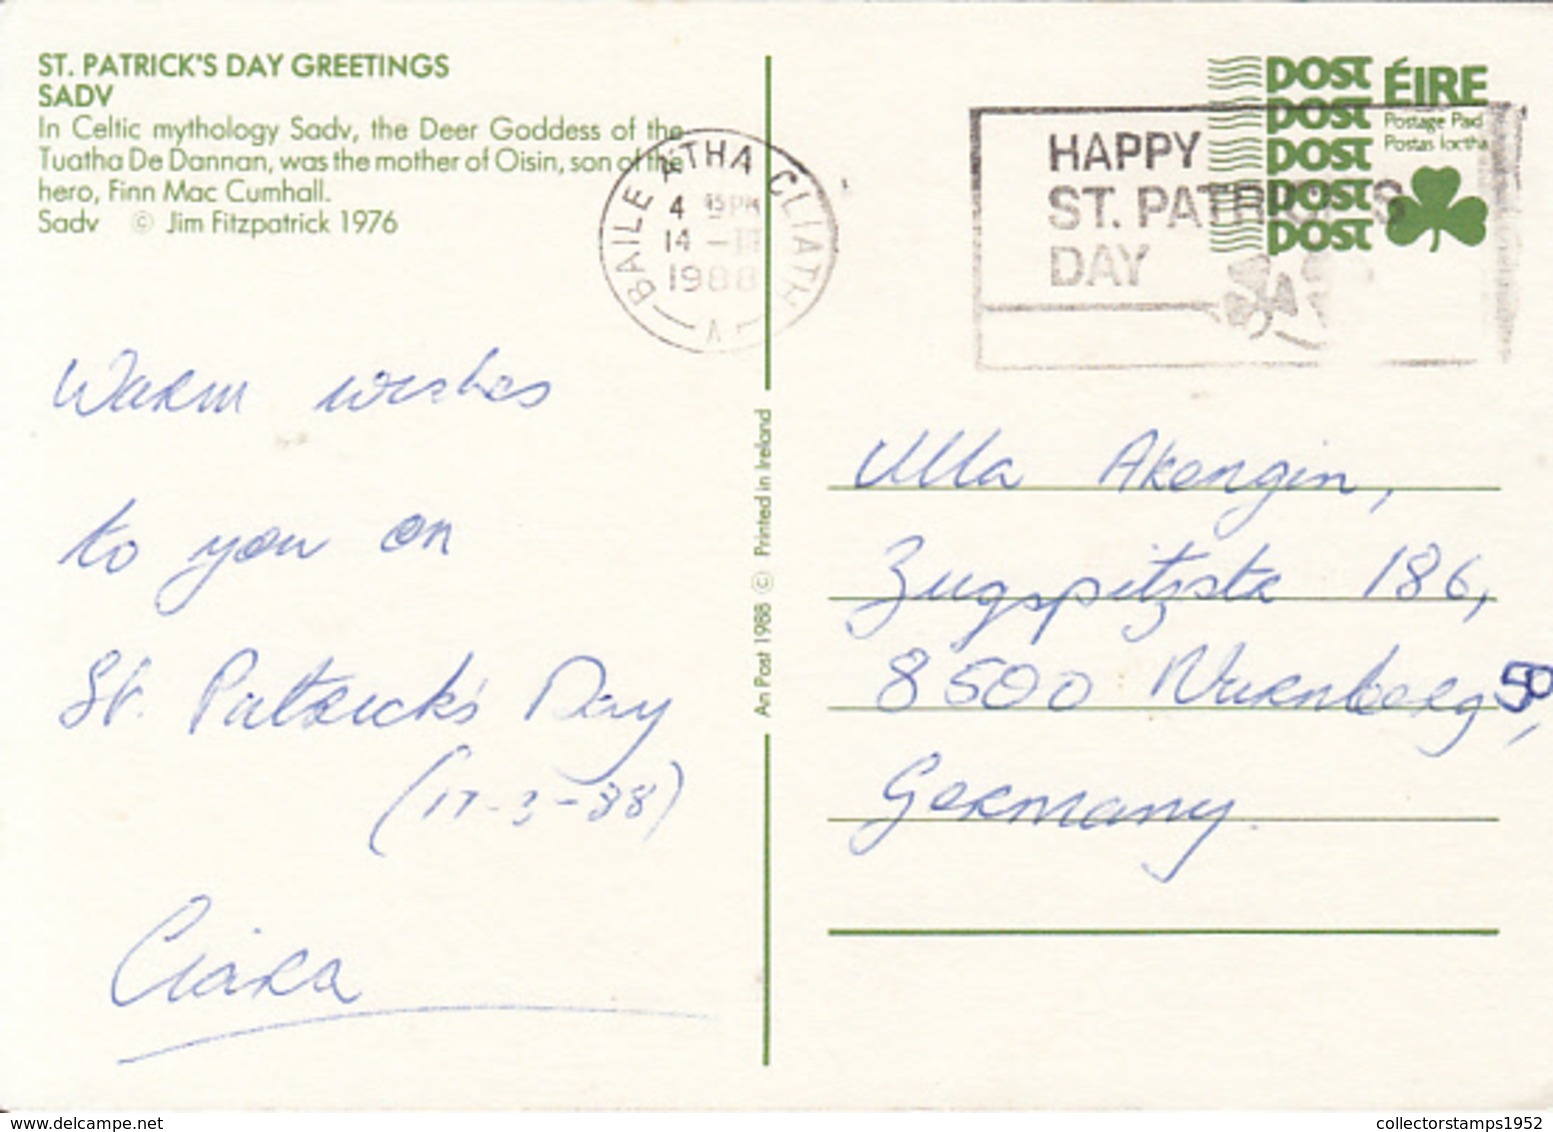 ST. PATRICK'S DAY GREETINGS
SADV
In Celtic mythology Sadv, the Deer Goddess of the
Tuatha De Dannan, was the mother of Oisin, son of the
hero, Finn Mac Cumhall.
Sadv © Jim Fitzpatrick 1976
BAILE ÁTHA CLIATH
4 45 PM
14 - III
1988
A
HAPPY
ST. PATRICK'S
DAY
post ÉIRE
post Postage Paid
post Postas Íoctha
post
post
Warm wishes
to you on
St. Patrick's Day
(17-3-88)
Ciara
An Post 1988 © Printed in Ireland
Ulla Akengin,
Zugspitzstr 186,
8500 Nurnberg 50,
Germany.
delcampe.net
collectorstamps1952